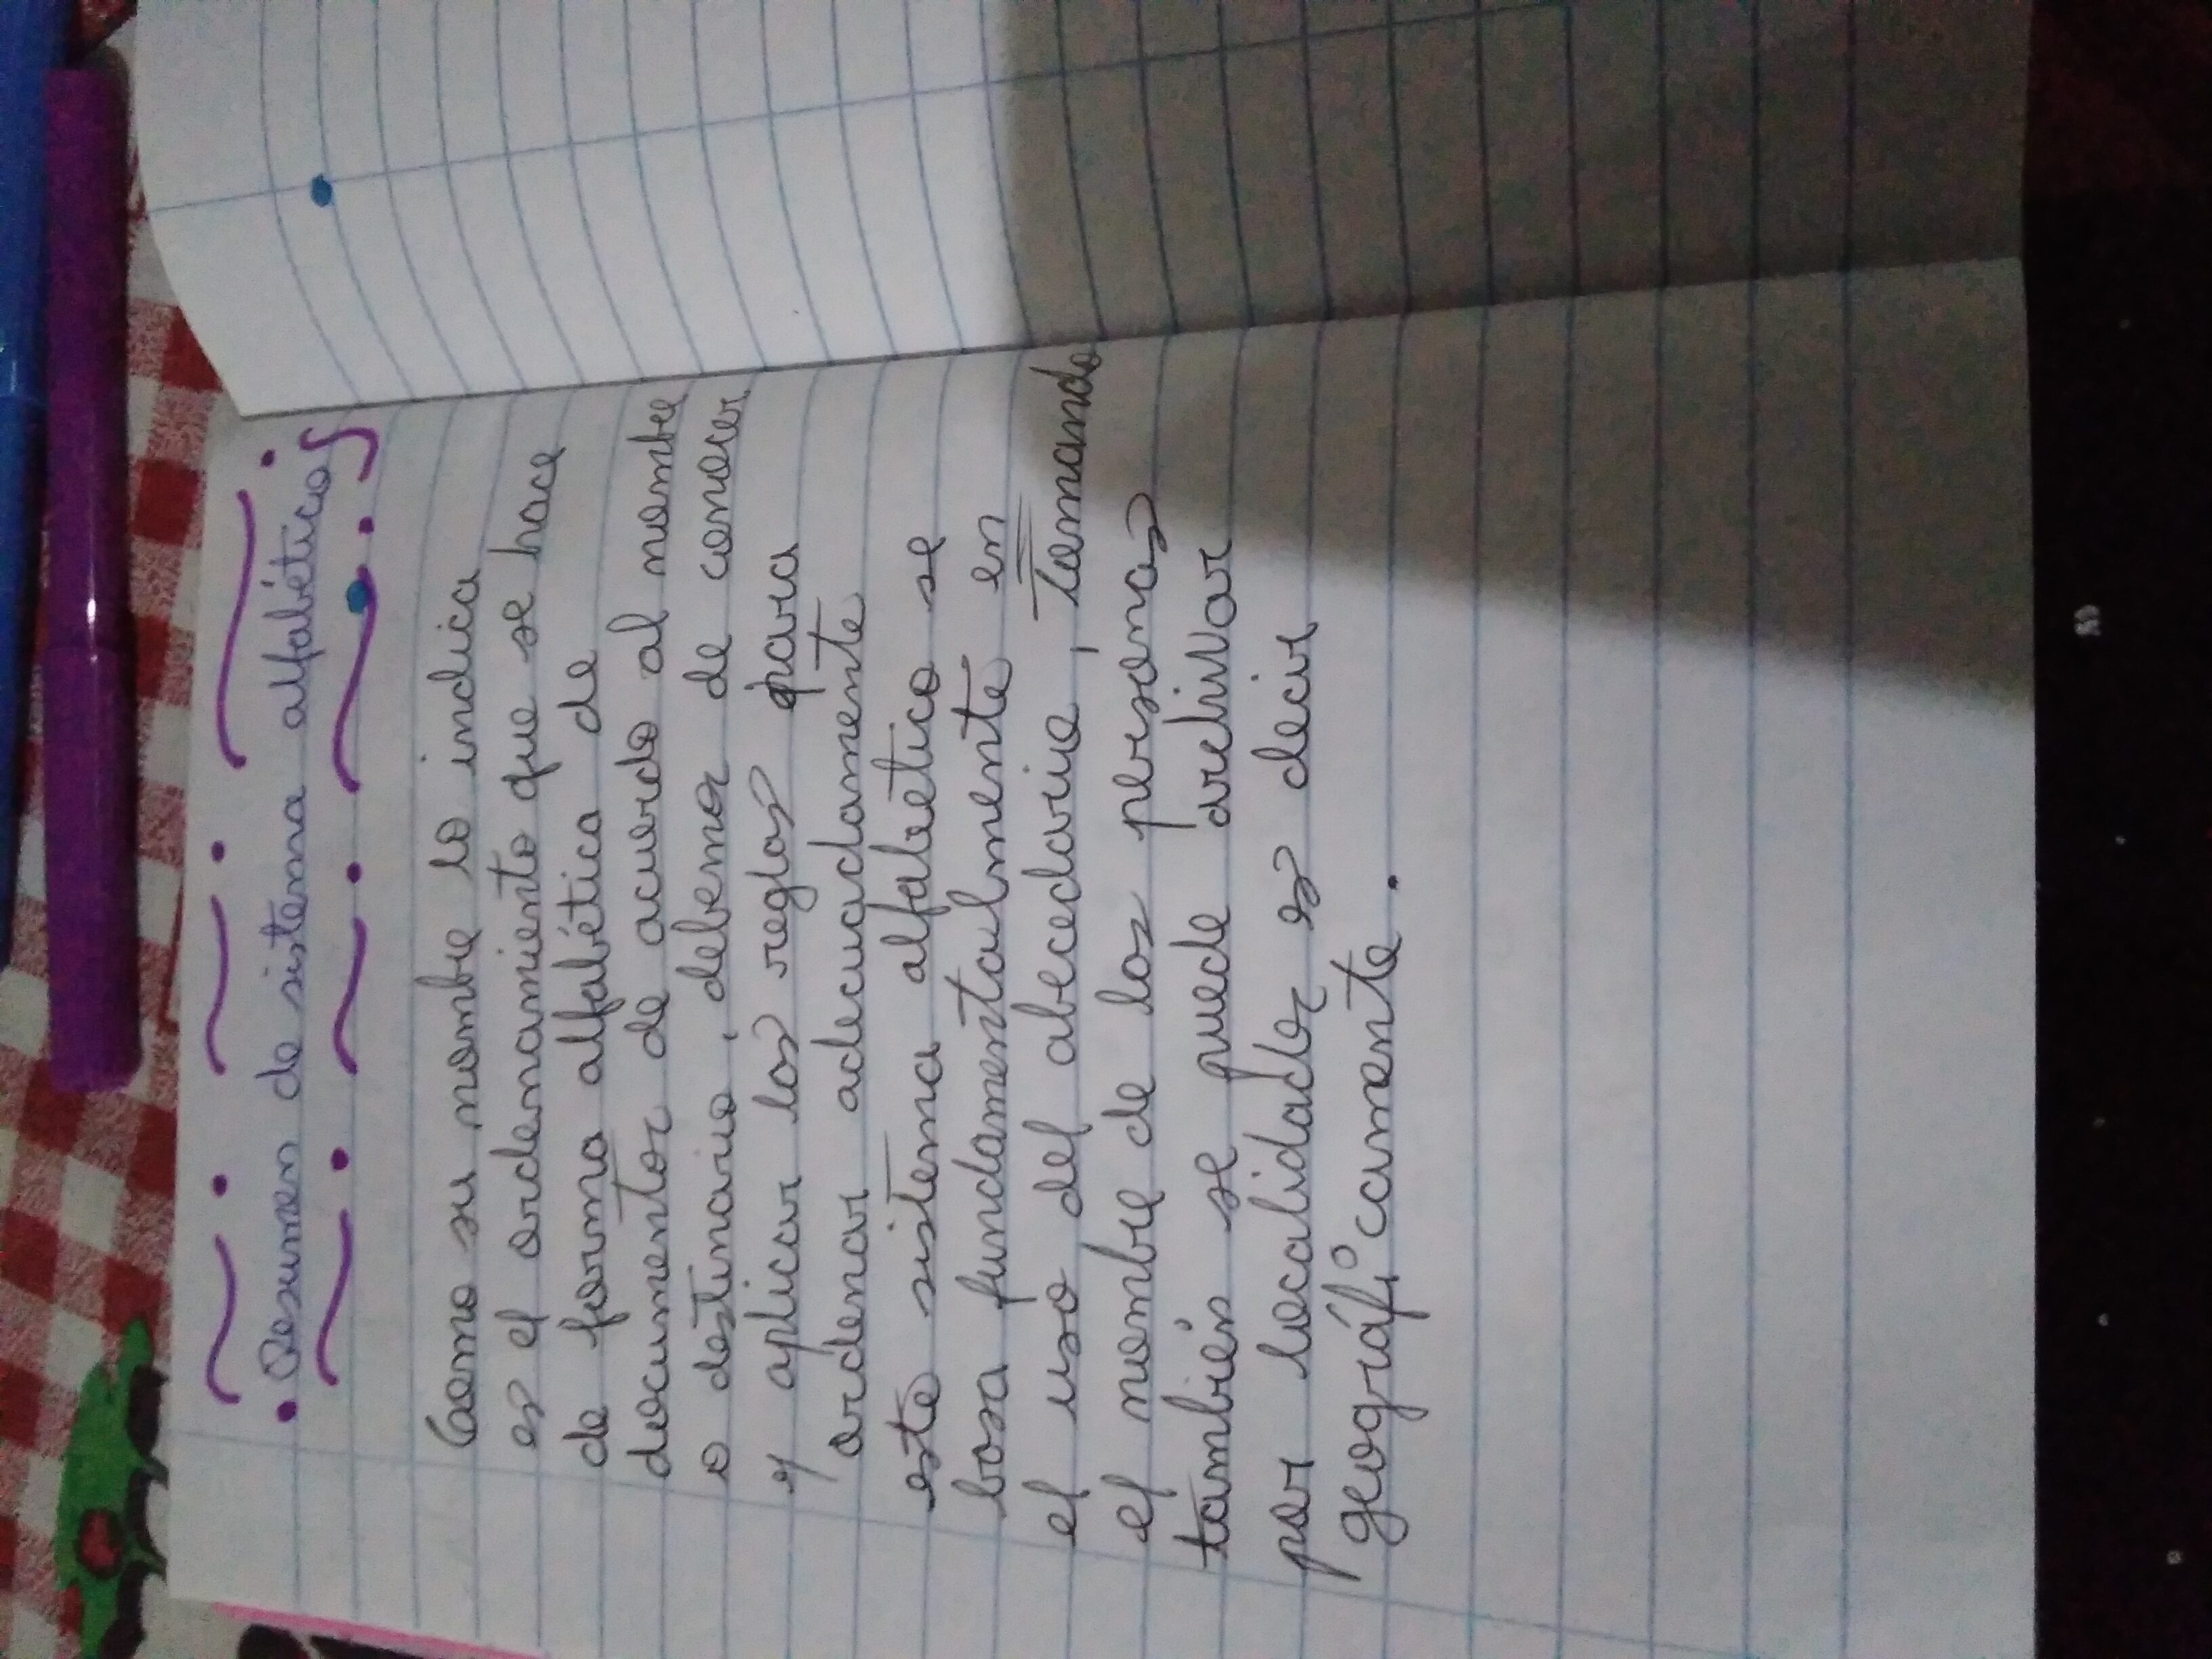 • Resumen de sistema alfabético
Como su nombre lo indica
es el ordenamiento que se hace
de forma alfabética de
documentos de acuerdo al nombre
o destinario, debemos de conocer
y aplicar las reglas para
ordenar adecuadamente
este sistema alfabetico se
basa fundamentalmente en
el uso del abecedario, Tomando
el nombre de las personas
también se puede archivar
por localidades es decir
geográficamente.